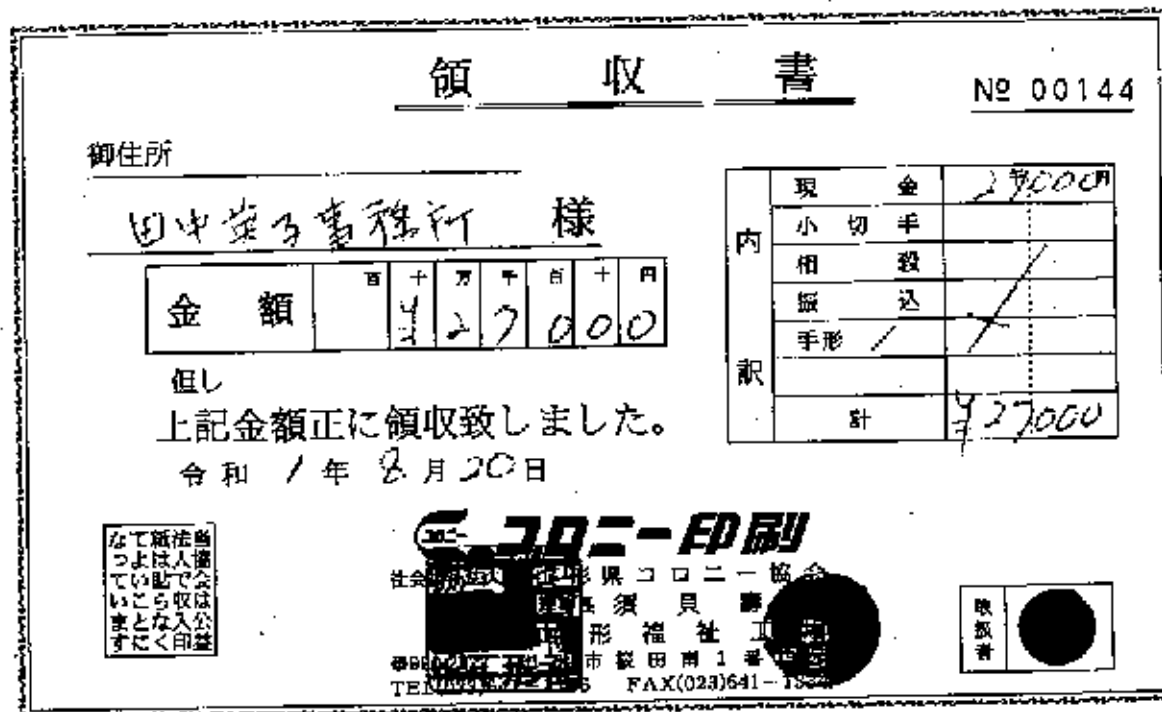 領収書
№ 00144
御住所
田中英子事務所 様
金額 百十万千百十円
¥27000
但し
上記金額正に領収致しました。
令和 1年 8月20日
内訳
現金 27000円
小切手
相殺
振込
手形
計 ¥27000
当協会は公益
法人で収入印
紙は貼らなく
てよいことに
なっています
コロニー
コロニー印刷
社会 形県コロニー協会
須貝
形福祉工
市桜田南1番
TEL FAX(023)641-
取扱者